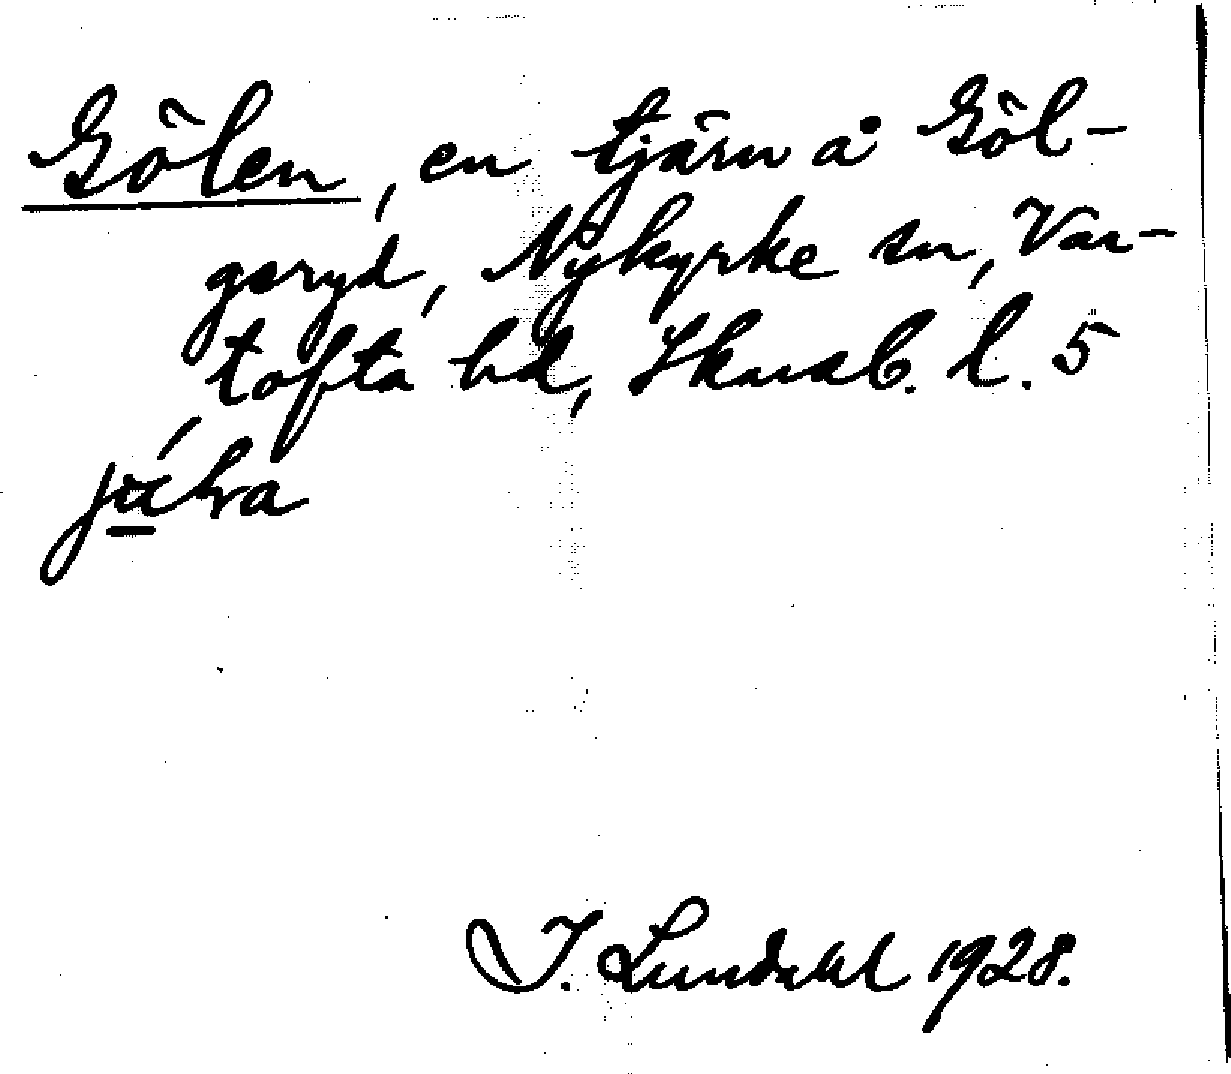 Gölen, en tjärn å Göl-
gsryd, Nykyrke sn, Var-
tofta hd, Skarab. l. 5
I. Lundahl 1928.